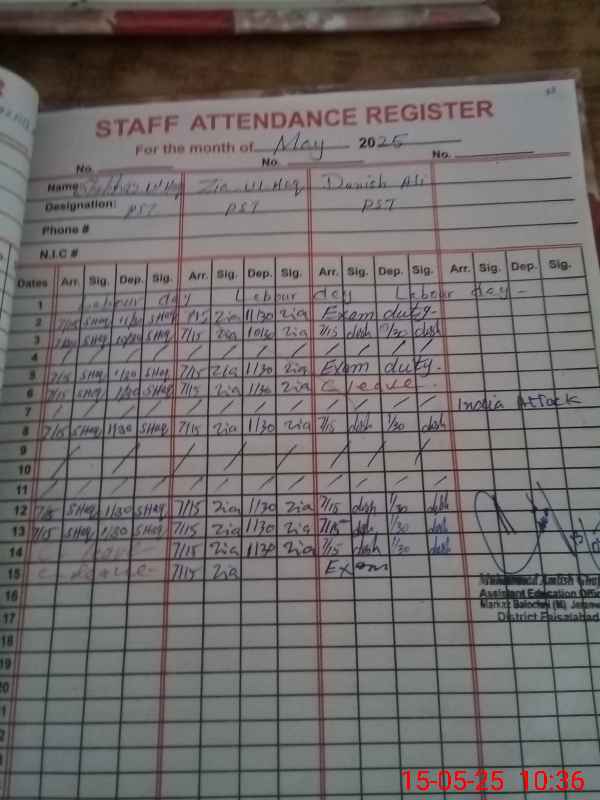 STAFF ATTENDANCE REGISTER
For the month of May 2025
No. No. No.
Name Zia Ul Haq Danish Ali
Designation: PST PST PST
Phone #
N.I.C #
Dates Arr. Sig. Dep. Sig. Arr. Sig. Dep. Sig. Arr. Sig. Dep. Sig. Arr. Sig. Dep. Sig.
1 Labour day Labour day Labour day -
2 7/15 SHaq 11/30 SHaq Zia 11/30 Zia Exam duty-
3 SHaq SHaq 7/15 Zia Zia 7/15 dish 11/30 dish
4 / / / / / / / / / / / /
5 7/15 SHaq 1/30 SHaq 7/15 Zia 1/30 Zia Exam duty.
6 7/15 SHaq 1/30 SHaq 7/15 Zia 1/30 Zia C leave -
7 / / / / / / / / / / / / India Attack
8 7/15 SHaq 1/30 SHaq 7/15 Zia 1/30 Zia 7/15 dish 1/30 dish
9 / / / / / /
10
11 / / / / / / / / / / / /
12 7/15 SHaq 1/30 SHaq 7/15 Zia 1/30 Zia 7/15 dish 1/30 dish
13 7/15 SHaq 1/30 SHaq 7/15 Zia 1/30 Zia 7/15 dish 1/30 dish
14 C leave - 7/15 Zia 1/30 Zia 7/15 dish 1/30 dish
15 C leave - 7/15 Zia Exam
Muhammad
16 Assistant Education Officer
Markaz (M)
17 District Faisalabad
18
19
20
15-05-25 10:36